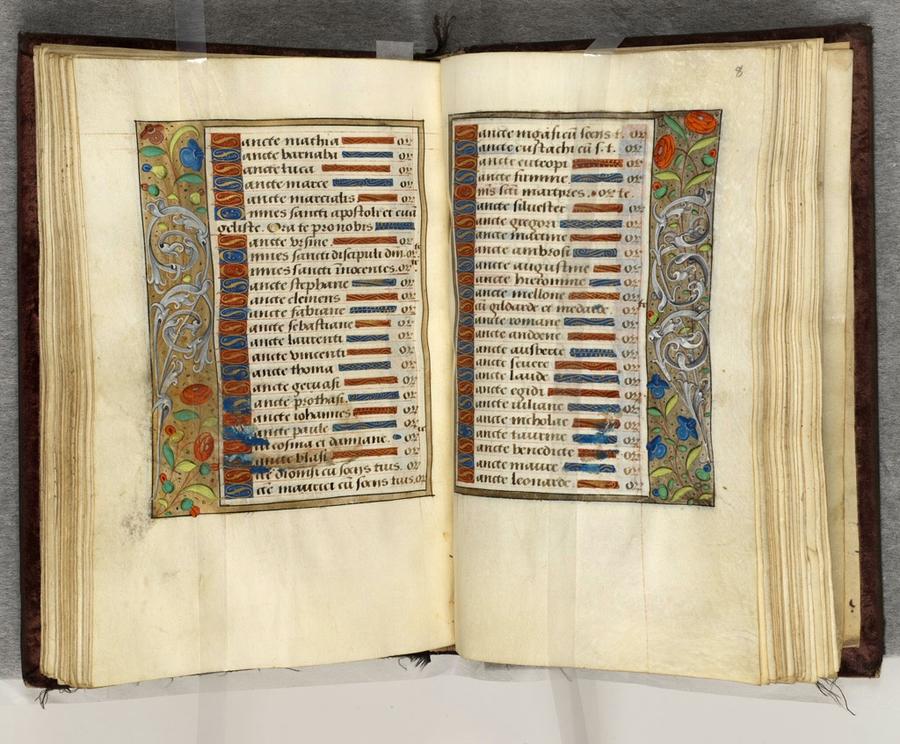 Sancte mathia or
Sancte barnaba or
Sancte luca or
Sancte marce or
Sancte marcialis or
Omnes sancti apostoli et euā
geliste. Orate pro nobis
Sancte vrsine or
Omnes sancti discipuli dm̄. or
Omnes sancti innocentes. or
Sancte stephane or
Sancte clemens or
Sancte fabiane or
Sancte sebastiane or
Sancte laurenti or
Sancte vincenti or
Sancte thoma or
Sancte geruasi or
Sancte prothasi. or
Sancte iohannes or
Sancte paule or
cosma et damiane. or
Sancte blasi or
dionisi cū sociis tuis. or
Sctē maurici cū sociis tuis. or
8
Sancte nigasi cū sociis t. or
Sancte eustachi cū s. t.
Sancte eutropi or
Sancte summe or
Oīs scti martires. or te.
Sancte siluester or
Sancte gregori or
Sancte martine or
Sancte ambrosi or
Sancte augustine or
Sancte hieronime or
Sancte mellone or
cū gildarde et medarde
Sancte romane or
Sancte audoene or
Sancte ausberte or
Sancte seuere or
Sancte laude or
Sancte egidi or
Sancte iuliane or
Sancte nicholae or
Sancte taurine or
Sancte benedicte or
Sancte maure or
Sancte leonarde or